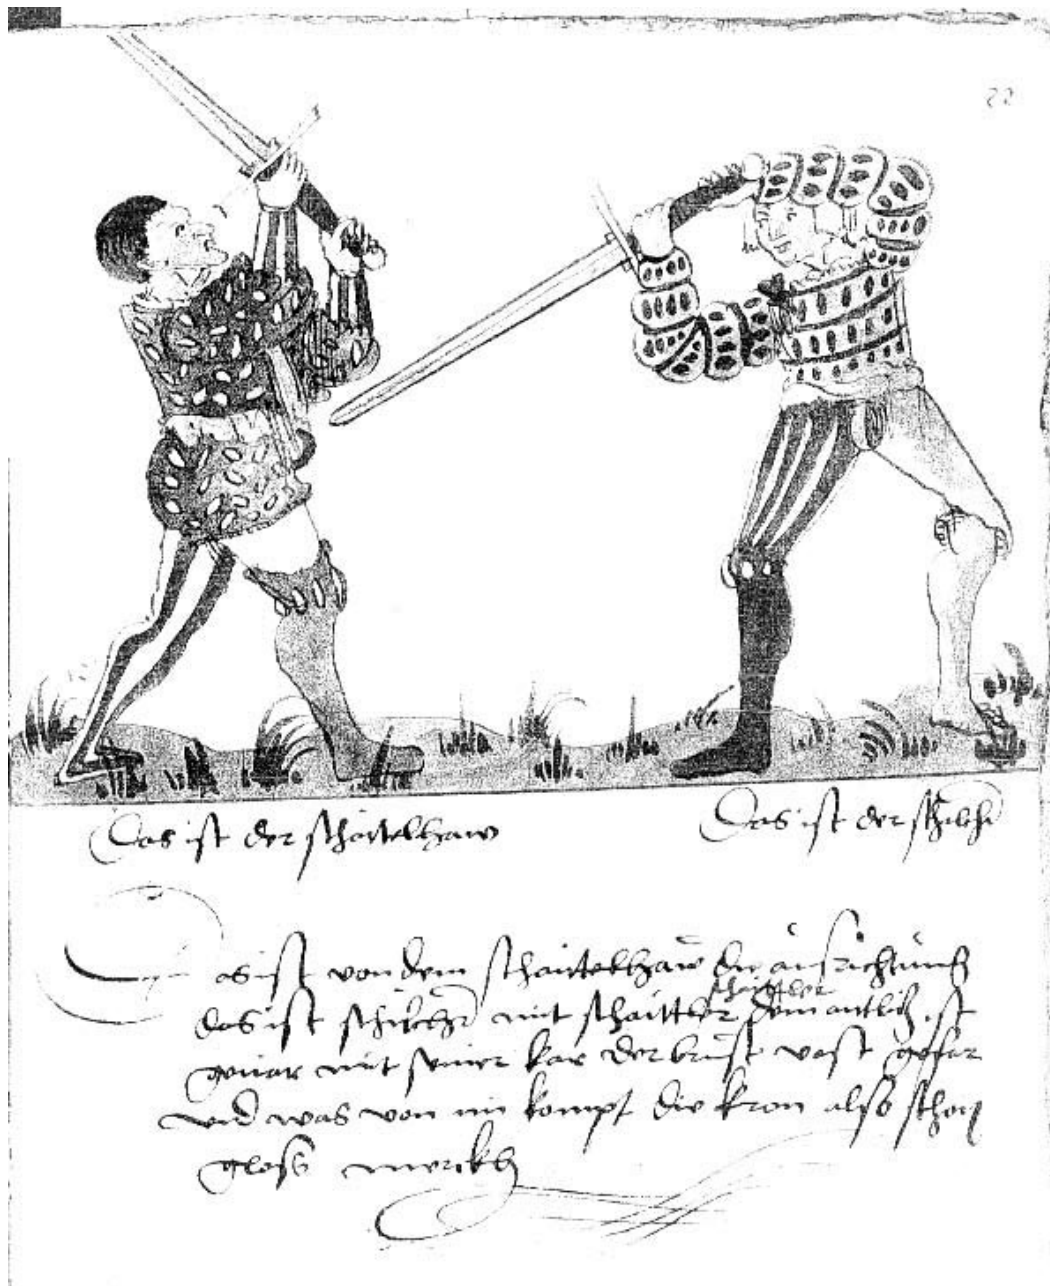 22
Das ist der schaittelhaw
Das ist der
Das ist von dem schaittelhaw die ausrichtung
schaittler
das ist mit schaittler dem antlitz ist
gevar mit seiner kar der brust vast gefar
und was von im kompt die kron also schon
gloss merckh